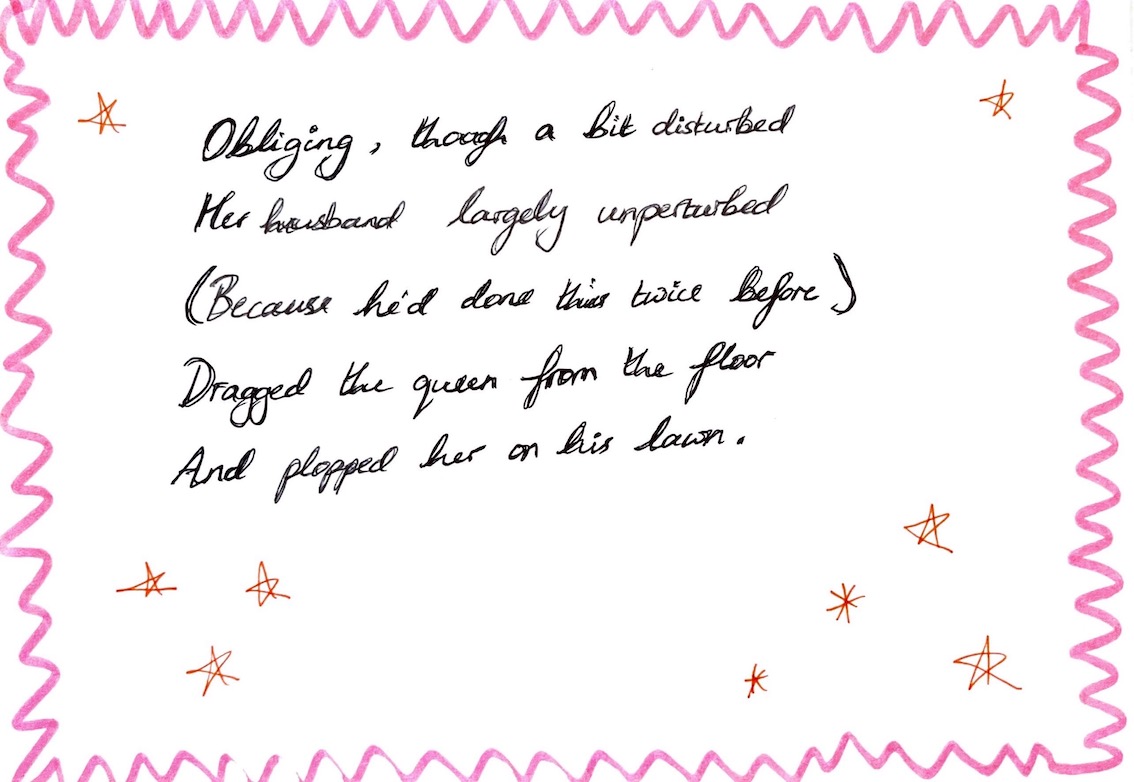 Obliging, though a bit disturbed
Her husband largely unperturbed
(Because he'd done this twice before)
Dragged the queen from the floor
And plopped her on his lawn.